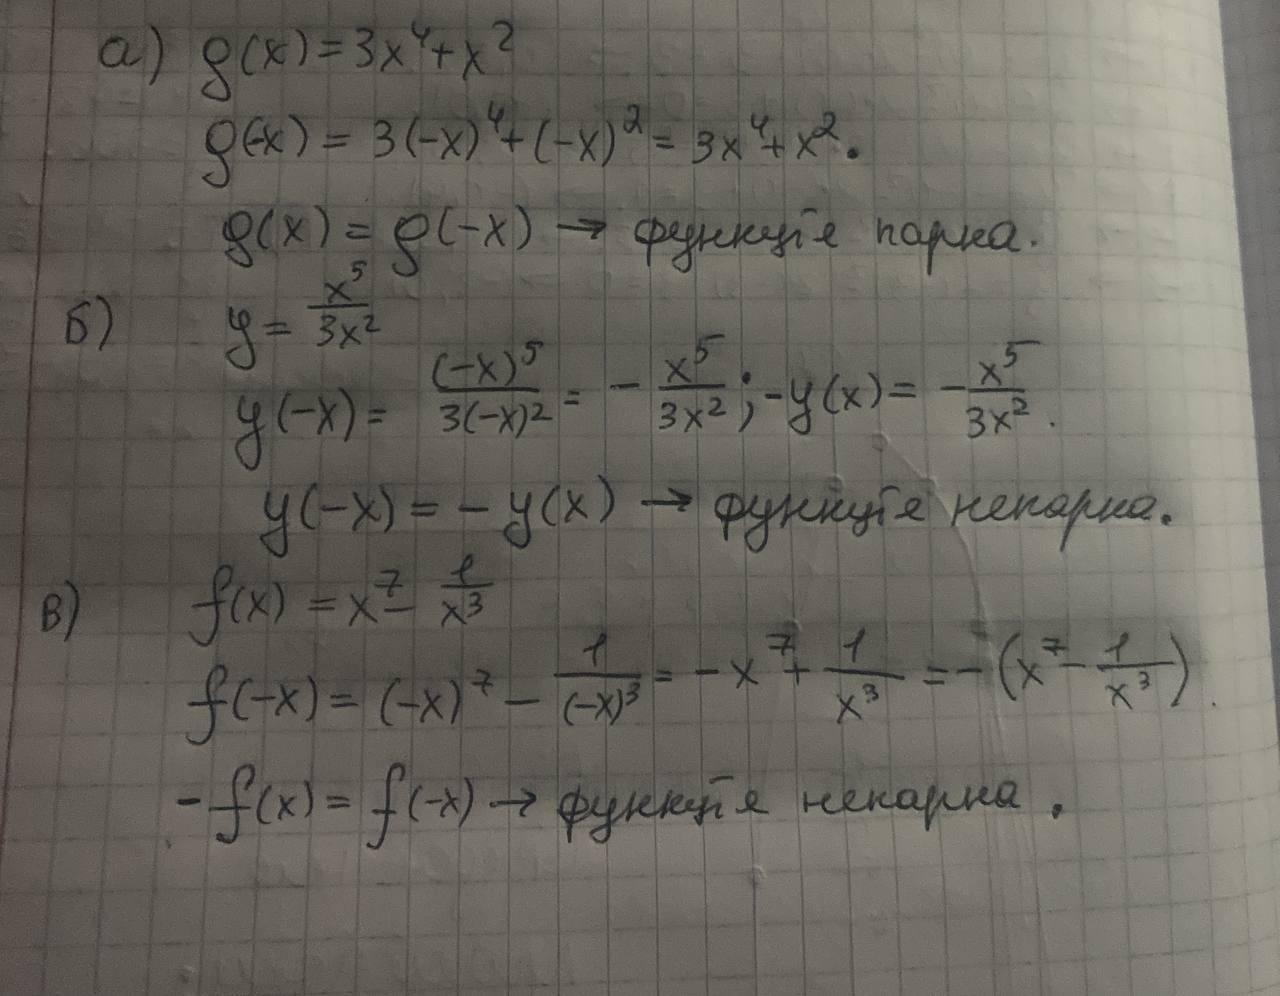 а) g(x) = 3x⁴ + x²
g(-x) = 3(-x)⁴ + (-x)² = 3x⁴ + x².
g(x) = g(-x) → функція парна.
б) y = x⁵/3x²
y(-x) = (-x)⁵/3(-x)² = - x⁵/3x²; -y(x) = - x⁵/3x².
y(-x) = - y(x) → функція непарна.
в) f(x) = x⁷ - 1/x³
f(-x) = (-x)⁷ - 1/(-x)³ = - x⁷ + 1/x³ = - (x⁷ - 1/x³).
- f(x) = f(-x) → функція непарна.